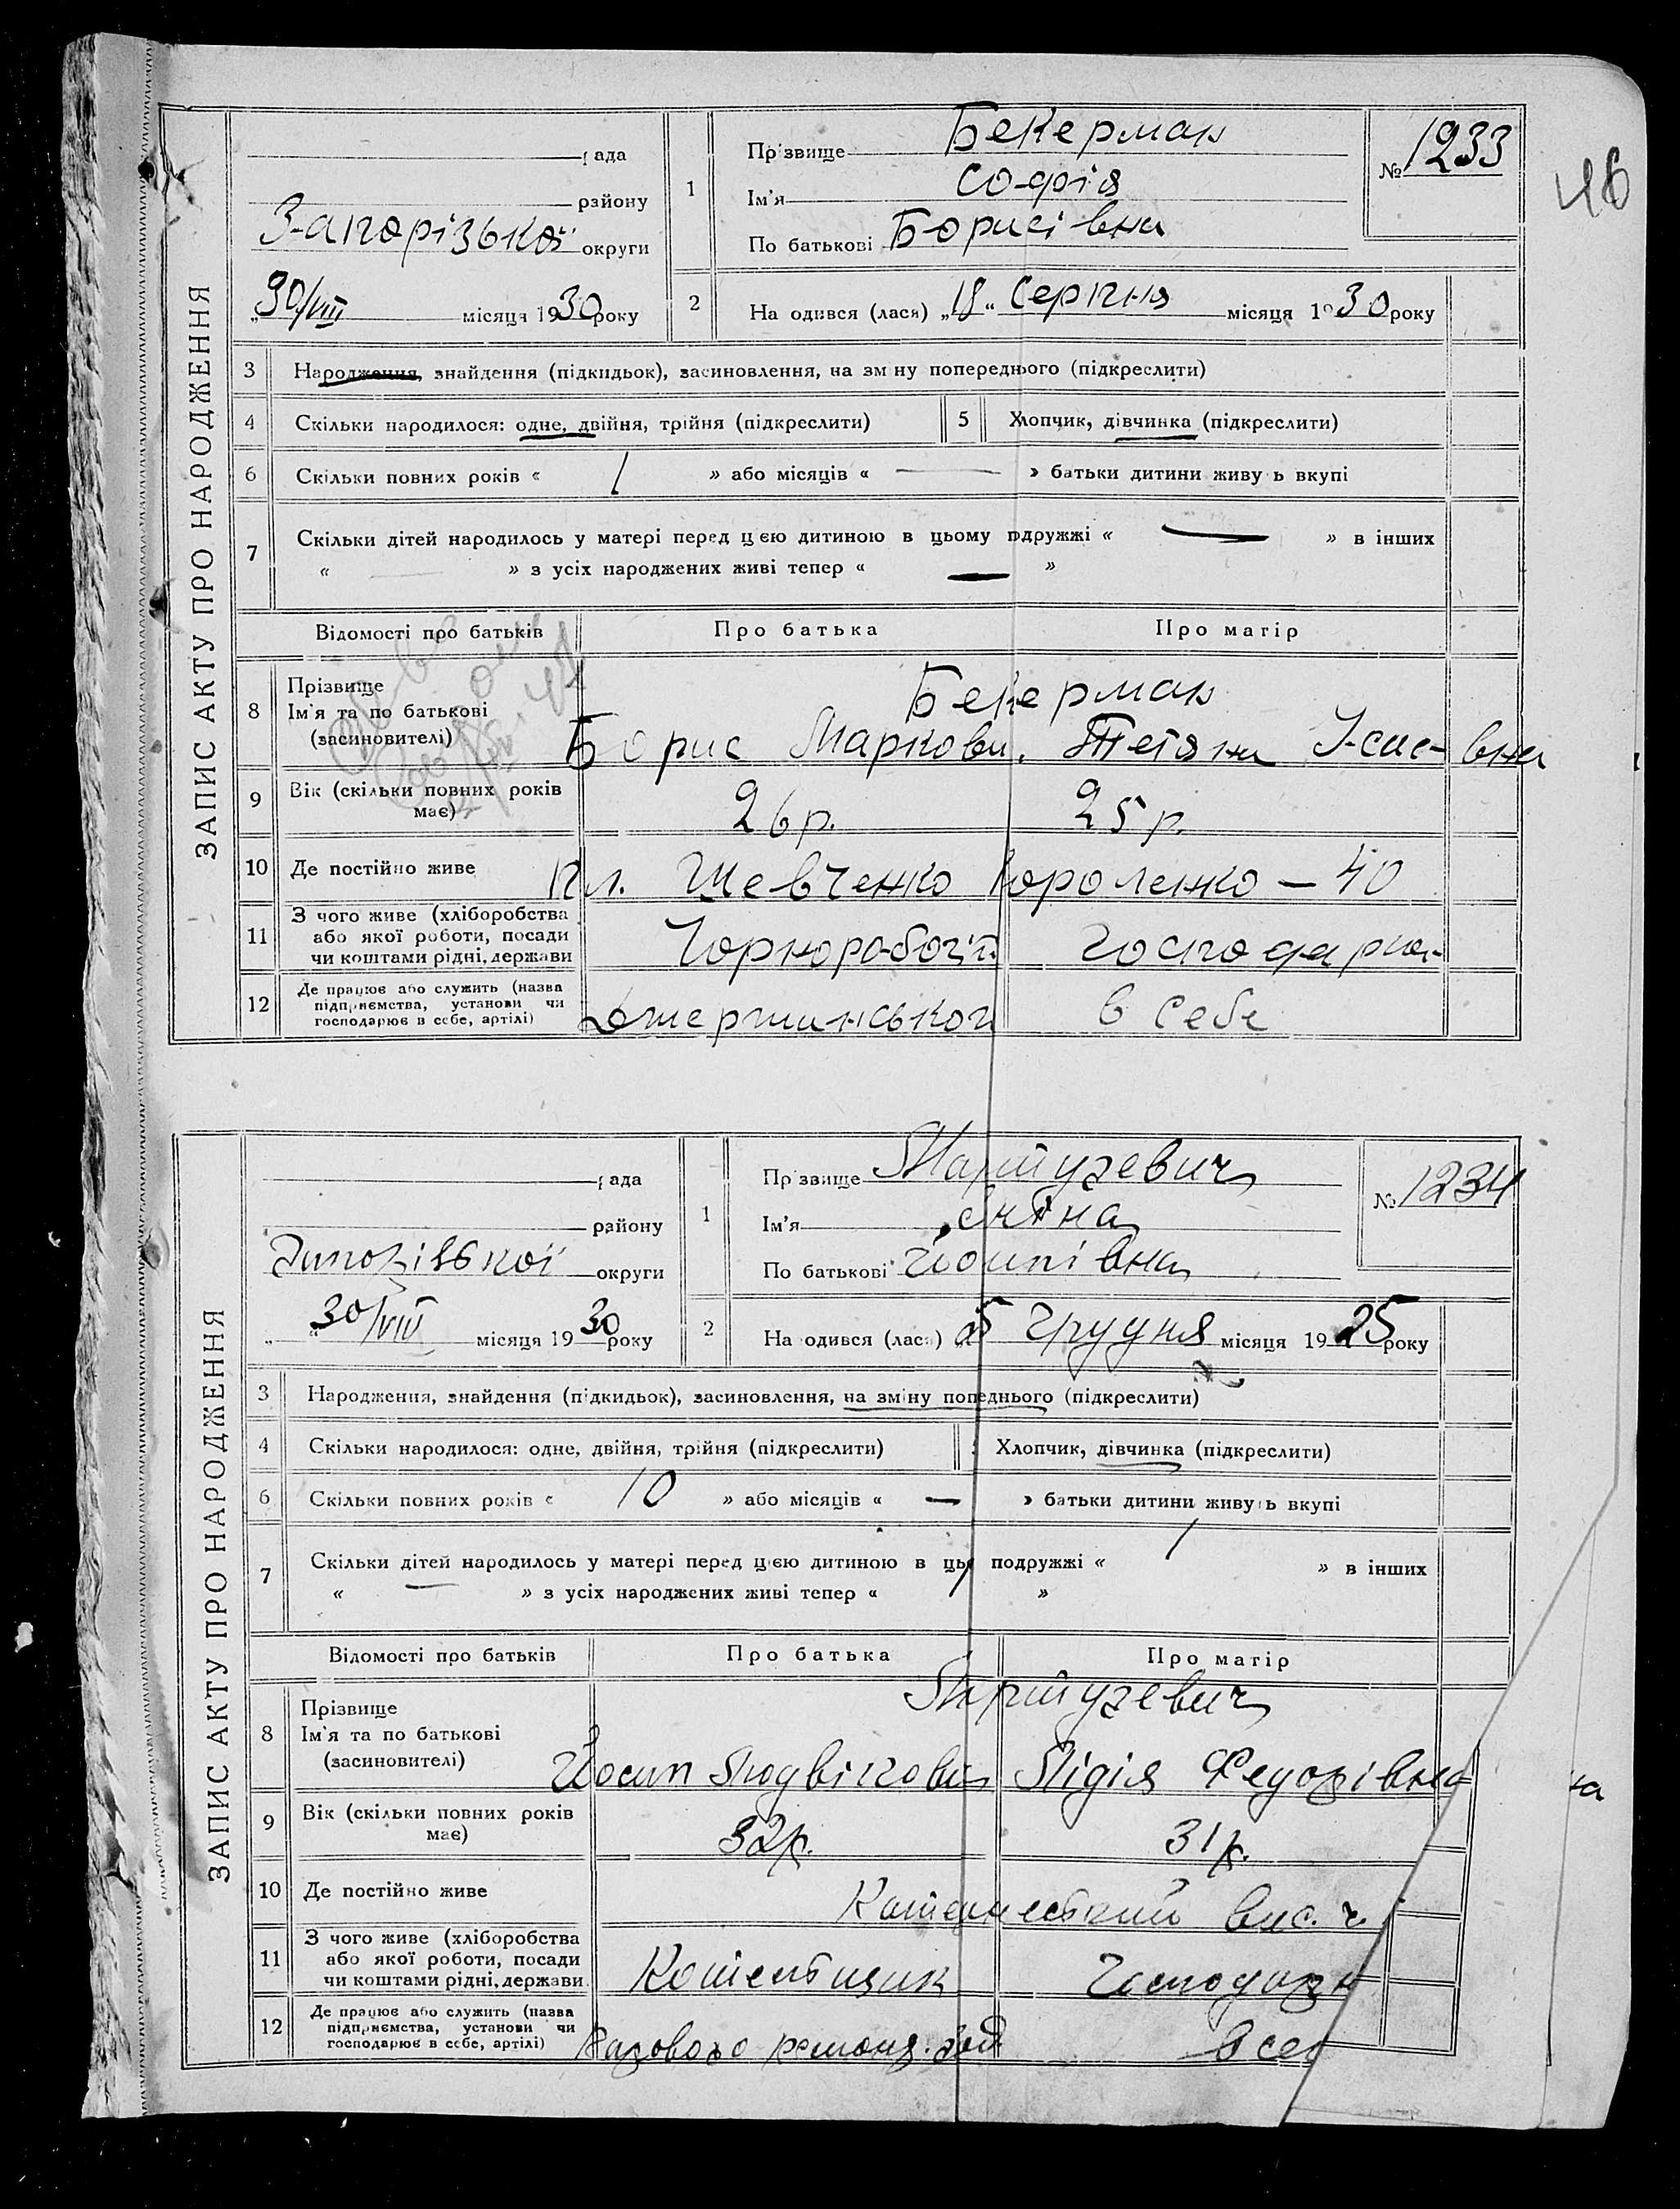 46
ЗАПИС АКТУ ПРО НАРОДЖЕННЯ
рада
району
Запорізької округи
„30/VIII місяця 1930 року
1
Прізвище Бекерман
Ім'я Софія
По батькові Борисівна
№ 1233
2
Народився (лася) „18“ Серпня місяця 1930 року
3 Народження, знайдення (підкидьок), засиновлення, на зміну попереднього (підкреслити)
4 Скільки народилося: одне, двійня, трійня (підкреслити)
5 Хлопчик, дівчинка (підкреслити)
6 Скільки повних років « 1 » або місяців « — » батьки дитини живуть вкупі
7 Скільки дітей народилось у матері перед цією дитиною в цьому подружжі « — » в інших
« — » з усіх народжених живі тепер « — »
Відомості про батьків Про батька Про матір
8 Прізвище
Ім'я та по батькові
(засиновителі)
Бекерман
Борис Маркови. Тетяна Ісаєвна
9 Вік (скільки повних років має) 26 р. 25 р.
10 Де постійно живе Пл. Шевченко Короленко – 40
11 З чого живе (хліборобства
або якої роботи, посади
чи коштами рідні, держави
Чорноробочий Господарка
12 Де працює або служить (назва
підприємства, установи чи
господарює в себе, артілі)
в себе
ЗАПИС АКТУ ПРО НАРОДЖЕННЯ
рада
району
Запорізької округи
„30/VIII місяця 1930 року
1
Прізвище
Ім'я
По батькові Йосипівна
№ 1234
2
Народився (лася) 25 Грудня місяця 1925 року
3 Народження, знайдення (підкидьок), засиновлення, на зміну попеднього (підкреслити)
4 Скільки народилося: одне, двійня, трійня (підкреслити)
Хлопчик, дівчинка (підкреслити)
6 Скільки повних років « 10 » або місяців « — » батьки дитини живуть вкупі
7 Скільки дітей народилось у матері перед цією дитиною в подружжі « 1 » в інших
« — » з усіх народжених живі тепер « 1 »
Відомості про батьків Про батька Про матір
8 Прізвище
Ім'я та по батькові
(засиновителі)
Йосип Лідія Федорівна
9 Вік (скільки повних років має) 32 р. 31 р.
10 Де постійно живе
11 З чого живе (хліборобства
або якої роботи, посади
чи коштами рідні, держави
12 Де працює або служить (назва
підприємства, установи чи
господарює в себе, артілі)